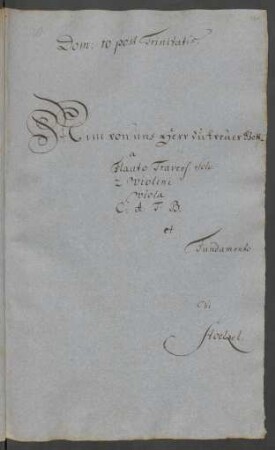 Dom: 10 post Trinitatis
Nim von uns Herr du treuer Gott
a
Flauto Travers. solo
2 Violini
Viola
C. A. T. B.
et
Fundamento
di
Stoelzel.